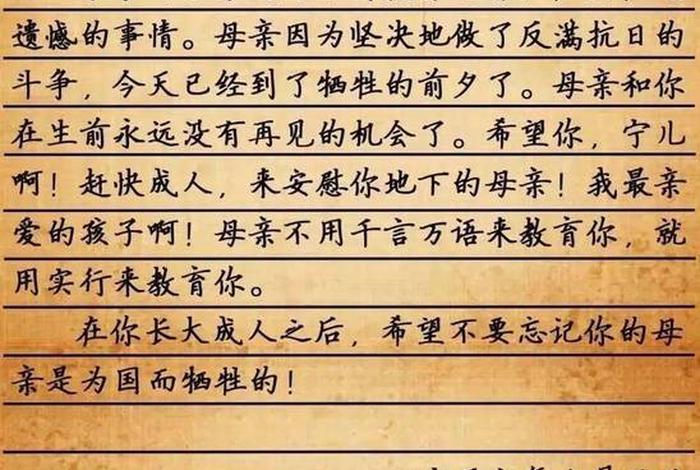 遗憾的事情。母亲因为坚决地做了反满抗日的
斗争，今天已经到了牺牲的前夕了。母亲和你
在生前永远没有再见的机会了。希望你，宁儿
啊！赶快成人，来安慰你地下的母亲！我最亲
爱的孩子啊！母亲不用千言万语来教育你，就
用实行来教育你。
在你长大成人之后，希望不要忘记你的母
亲是为国而牺牲的！